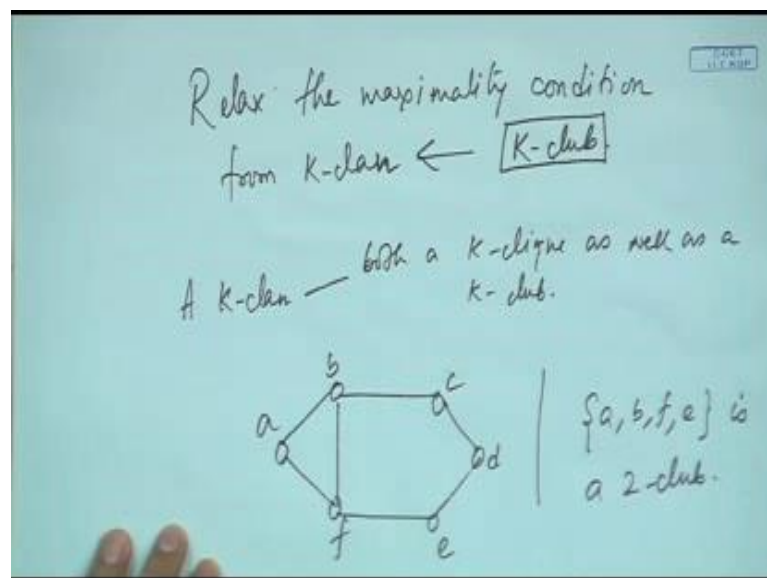 Relax the maximality condition
from K-clan ← K-club
A K-clan — both a K-clique as well as a
K-club.
b
c
a
d
f
e
{a, b, f, e} is
a 2-club.